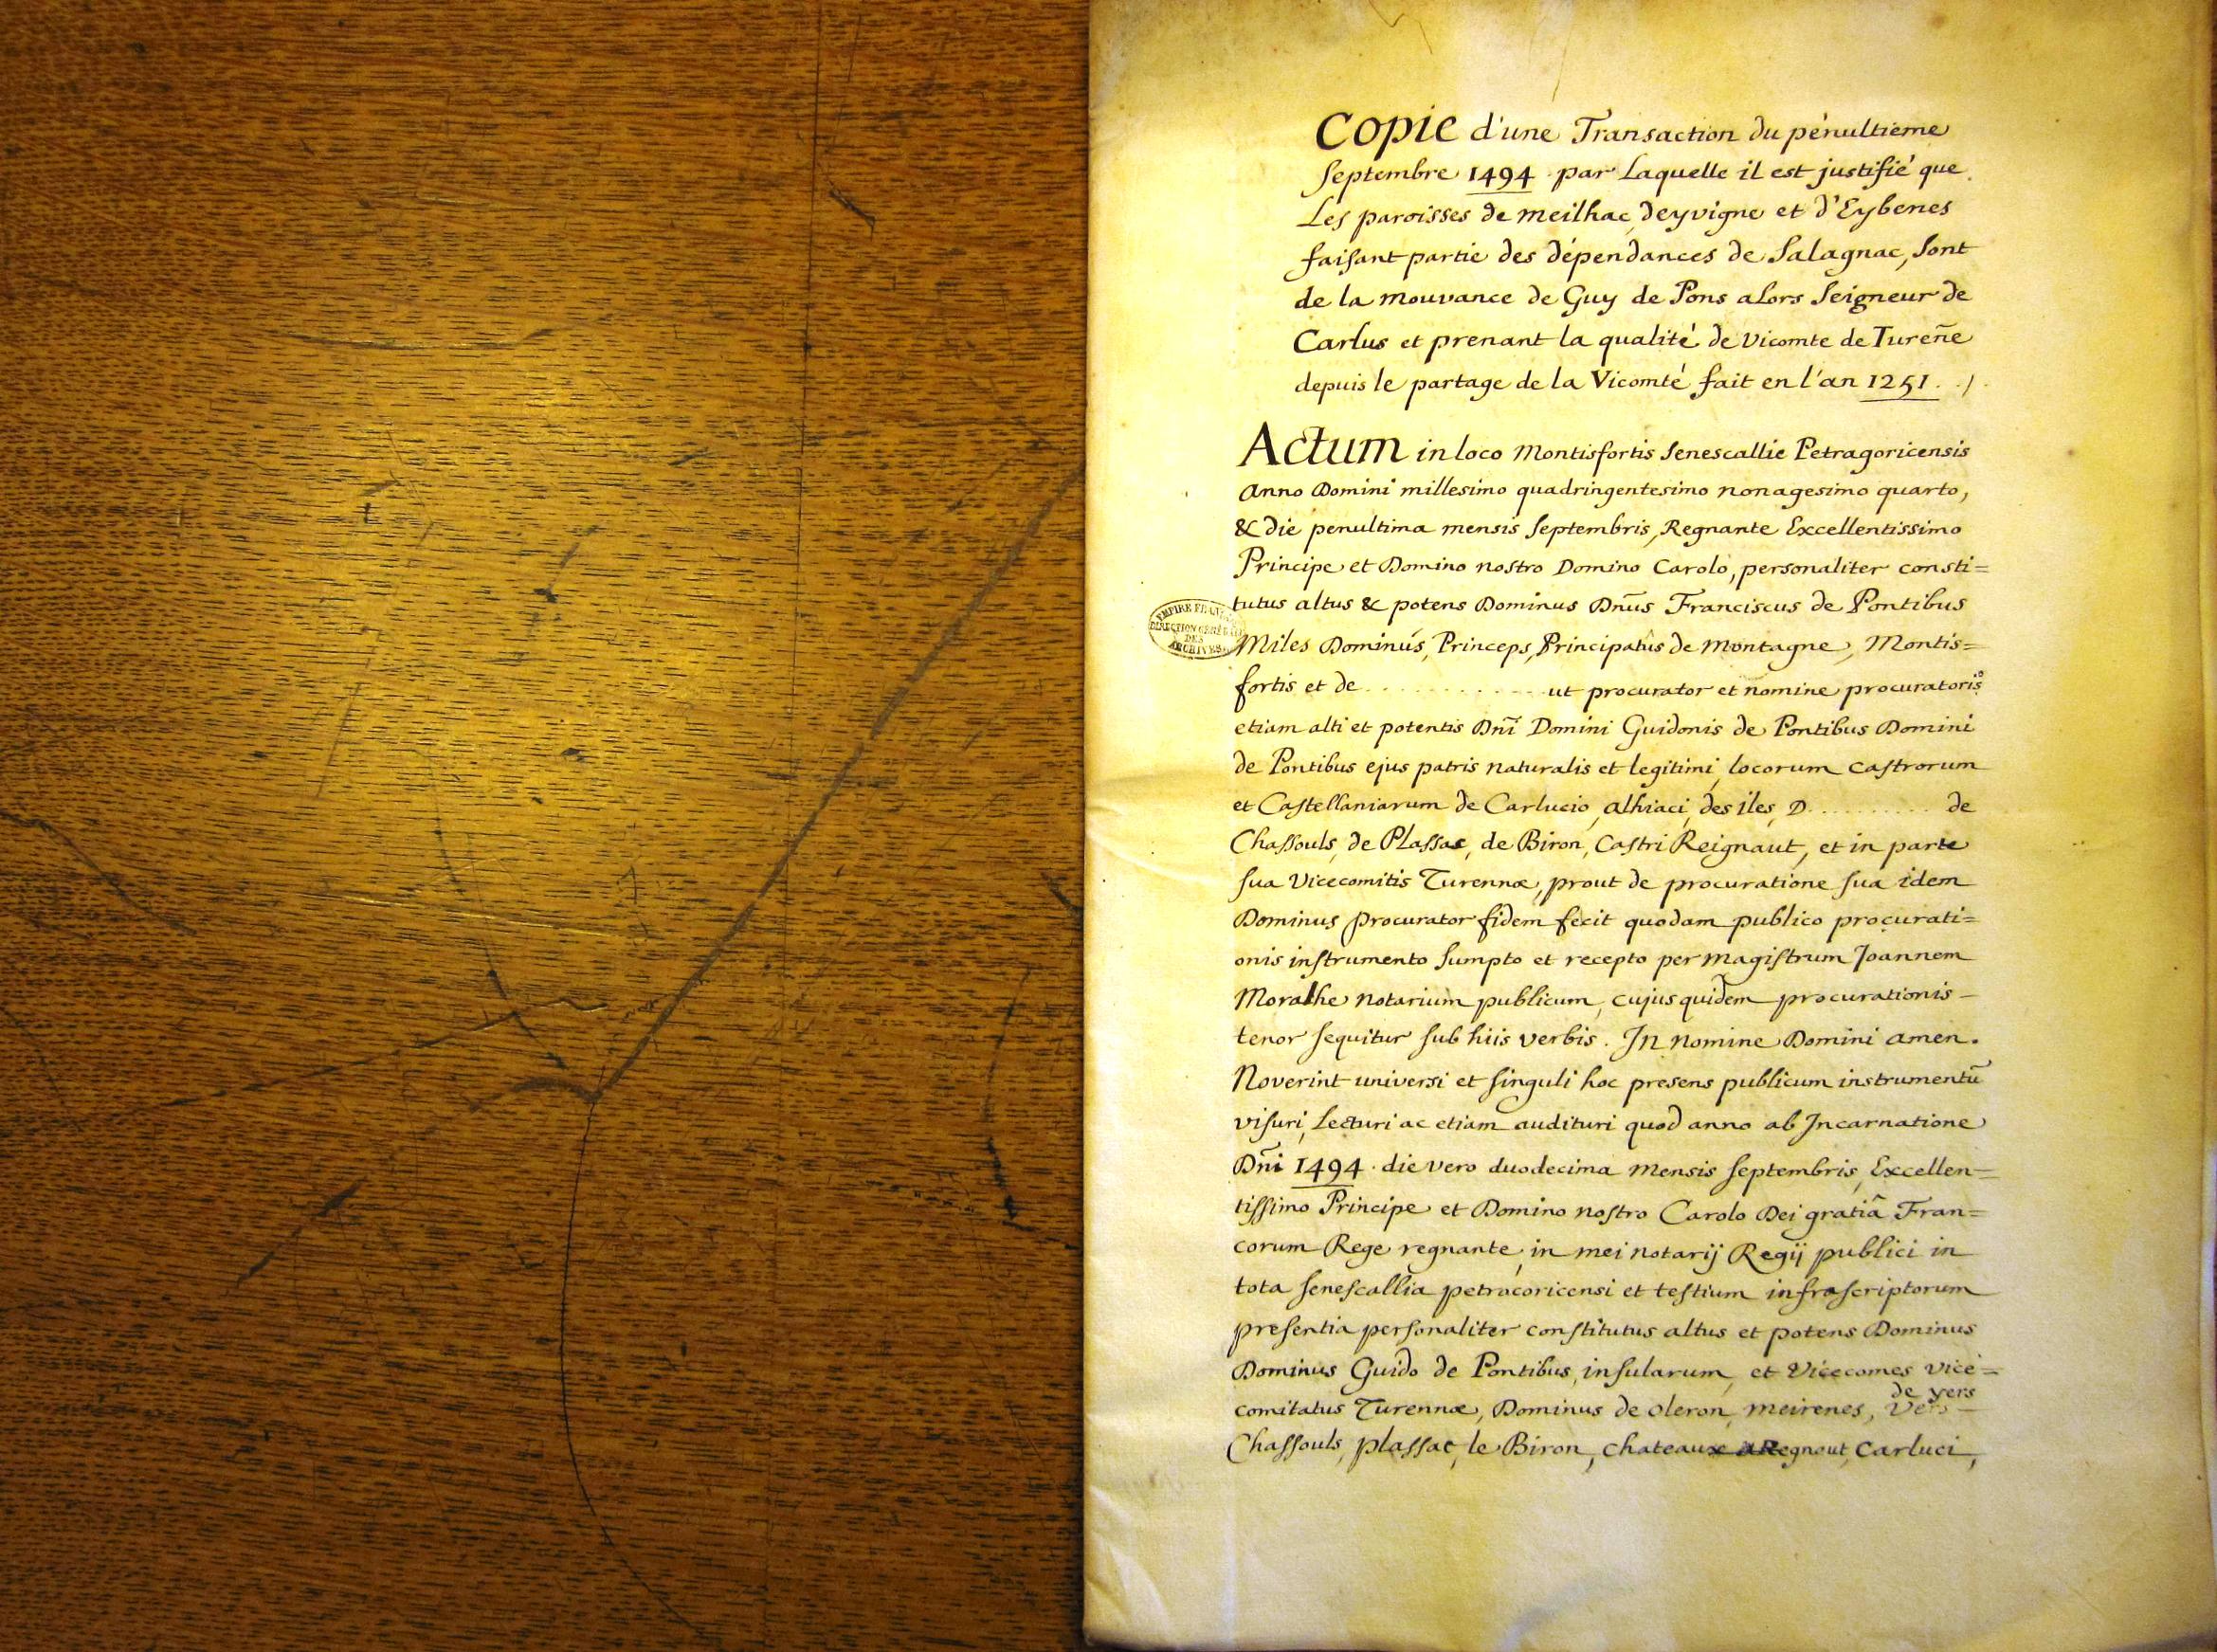 Copie d'une Transaction du pénultieme
Septembre 1494 par Laquelle il est justifié que
Les paroisses de Meilhac, deyvigne et d'Eybenes
faisant partie des dépendances de Salagnac, sont
de la mouvance de Guy de Pons alors seigneur de
Carlus et prenant la qualité de Vicomte de Tureñe
depuis le partage de la Vicomté fait en l'an 1251.
Actum in loco Montisfortis Senescallie Petragoricensis
anno Domini millesimo quadringentesimo nonagesimo quarto,
& die penultima mensis Septembris, Regnante Excellentissimo
Principe et Domino nostro Domino Carolo, personaliter consti=
tutus altus & potens Dominus Dñus Franciscus de Pontibus
EMPIRE FRANÇAIS
DIRECTION GENERALE
DES
ARCHIVES
Miles Dominus, Princeps, Principatûs de Montagne, Montis=
fortis et de ............ ut procurator et nomine procuratorio
etiam alti et potentis Dñi Domini Guidonis de Pontibus Domini
de Pontibus ejus patris naturalis et legitimi, locorum castrorum
et Castellaniarum de Carlucio, alhiaci, des iles, D .......... de
Chassouls, de Plassac, de Biron, Castri Reignaut, et in parte
sua Vicecomitis Turennæ, prout de procuratione sua idem
Dominus procurator fidem fecit quodam publico procurati=
onis instrumento sumpto et recepto per magistrum Joannem
Moralhe notarium publicum, cujus quidem procurationis -
tenor sequitur sub hiis verbis. In nomine Domini amen.
Noverint universi et singuli hoc presens publicum instrumentū
visuri, Lecturi ac etiam audituri quod anno ab Incarnatione
Dñi 1494. die vero duodecima mensis septembris, Excellen=
tissimo Principe et Domino nostro Carolo Dei gratiâ Fran=
corum Rege regnante, in mei notarij Regij publici in
tota senescallia petrocoricensi et testium infrascriptorum
presentia personaliter constitutus altus et potens Dominus
Dominus Guido de Pontibus, insularum, et Vicecomes vice=
comitatus Turennæ, Dominus de Oleron, meirenes, de vers
Chassouls, plassac, le Biron, chateaux aRegnaut, Carluci,